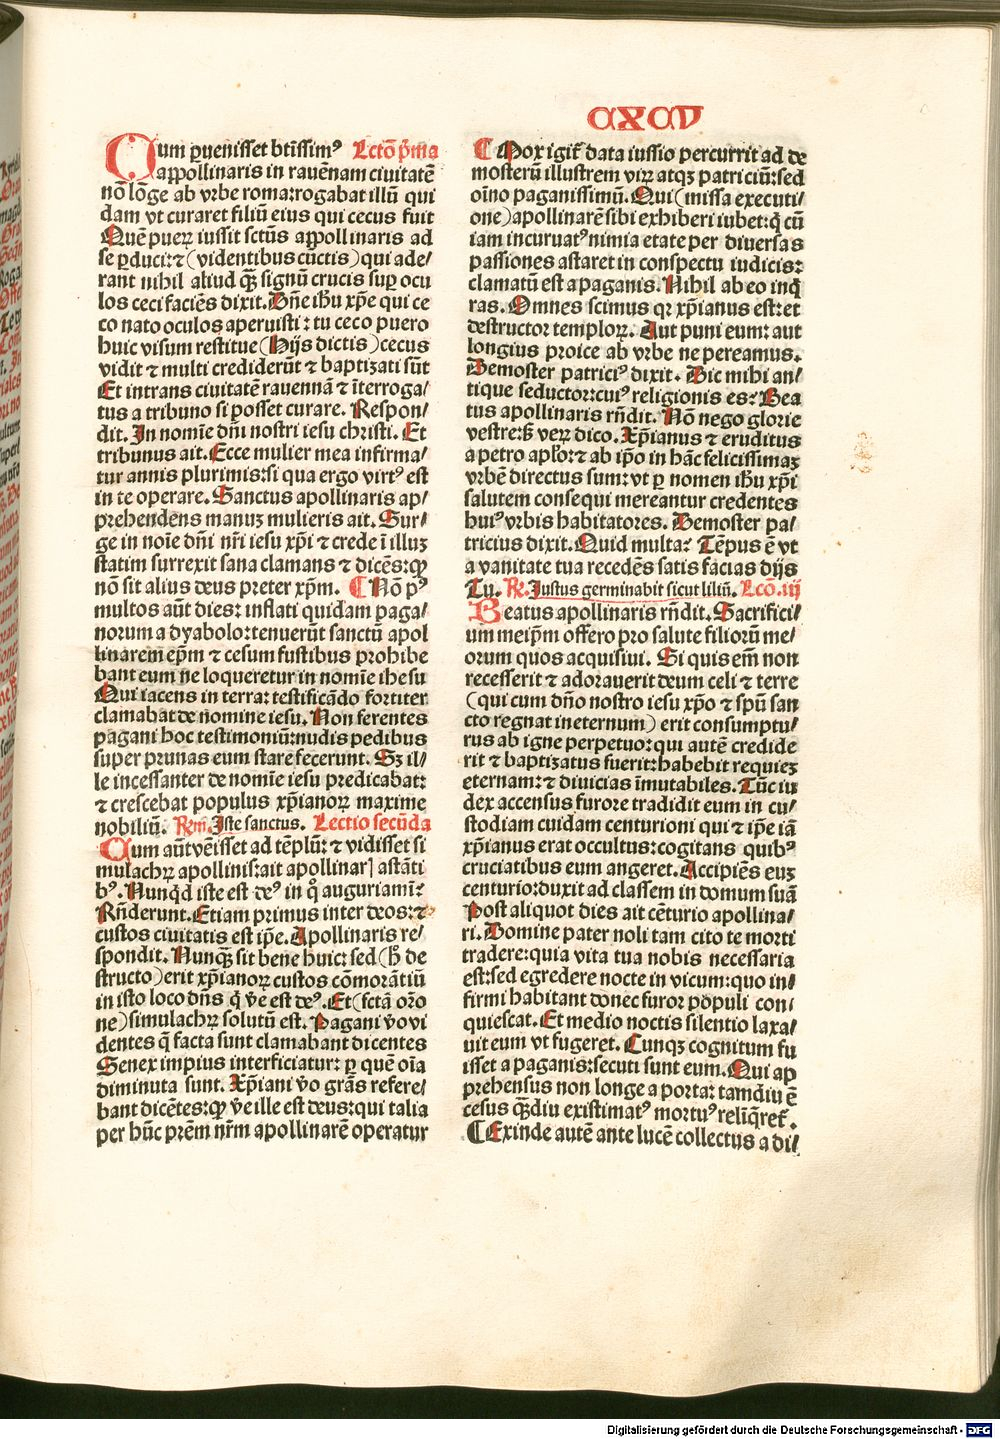 CXCV
Cum ꝑueniſſet btiſſimꝰ Lectõ p̃ma
appollinaris in rauẽnam ciuitatẽ
nõ lõge ab vrbe roma:rogabat illũ qui
dam vt curaret filiũ eius qui cecus fuit
Quẽ pueꝝ iuſſit ſctũs appollinaris ad
ſe ꝑduci:⁊ (videntibus cũctis) qui ade/
rant nihil aliud qꝫ̃ ſignũ crucis ſuꝑ ocu
los ceci faciẽs dixit. Dñe ihũ xp̃e qui ce
co nato oculos aperuiſti: tu ceco puero
huic viſum reſtitue (Hijs dictis) cecus
vidit ⁊ multi crediderũt ⁊ baptizati ſũt
Et intrans ciuitatẽ rauennã ⁊ ĩterroga/
tus a tribuno ſi poſſet curare. Reſpon/
dit. In nomĩe dñi noſtri ieſu chriſti. Et
tribunus ait. Ecce mulier mea infirma/
tur annis plurimis:ſi qua ergo virtꝰ eſt
in te operare. Sanctus apollinaris ap/
prehendens manuꝫ mulieris ait. Sur/
ge in noĩe dñi nr̃i ieſu xp̃i ⁊ crede ĩ illuꝫ
ſtatim ſurrexit ſana clamans ⁊ dicẽs:ꝙ
nõ ſit alius deus preter xp̃m. ¶ Nõ pꝰ
multos aũt dies: inflati quidam paga/
norum a dyabolo:tenuerũt ſanctũ apol
linarem ep̃m ⁊ ceſum fuſtibus prohibe
bant eum ne loqueretur in nomĩe iheſu
Qui iacens in terra: teſtificãdo fortiter
clamabat de nomine ieſu. Non ferentes
pagani hoc teſtimoniũ:nudis pedibus
ſuper prunas eum ſtare fecerunt. Sꝫ il/
le inceſſanter de nomĩe ieſu predicabat:
⁊ creſcebat populus xp̃ianoꝝ maxime
nobiliũ. Rem̃. Iſte ſanctus. Lectio ſecũda
Cum aũt vẽiſſet ad tẽplũ: ⁊ vidiſſet ſi
mulachꝝ apollinis:ait apollinar] aſtãti
bꝰ. Nunqd iſte eſt deꝰ in q̊ auguriamĩ:
Rñderunt. Etiam primus inter deos:⁊
cuſtos ciuitatis eſt ip̃e. Apollinaris re/
ſpondit. Nunqꝫ̃ ſit bene huic: ſed (h̃ de
ſtructo) erit xp̃ianoꝝ cuſtos cõmorãtiũ
in iſto loco dñs q̃ ṽe eſt deꝰ. Et (fctã oro
ne) ſimulachꝝ ſolutũ eſt. Pagani ṽo vi
dentes q̃ facta ſunt clamabant dicentes
Senex impius interficiatur: ꝑ quẽ oĩa
diminuta ſunt. Xp̃iani ṽo grãs refere/
bant dicẽtes:ꝙ ṽe ille eſt deus:qui talia
per hũc pr̃em nr̃m apollinarẽ operatur
¶ Mox igit̃ data iuſſio percurrit ad de
moſterũ illuſtrem viꝝ atqꝫ patriciũ:ſed
oĩno paganiſſimũ. Qui (miſſa executi/
one) apollinarẽ ſibi exhiberi iubet:q̃ cũ
iam incuruatꝰ nimia etate per diuerſas
paſſiones aſtaret in conſpectu iudicis:
clamatũ eſt a paganis. Nihil ab eo inq̃
ras. Omnes ſcimus qꝛ xp̃ianus eſt:et
deſtructor temploꝝ. Aut puni eum: aut
longius proice ab vrbe ne pereamus.
Demoſter patriciꝰ dixit. Dic mihi an/
tique ſeductor:cuiꝰ religionis es? Bea
tus apollinaris rñdit. Nõ nego glorie
veſtre:ß veꝝ dico. Xp̃ianus ⁊ eruditus
a petro apl̃o:⁊ ab ip̃o in hãc feliciſſimaꝫ
vrbẽ directus ſum: vt ꝑ nomen ihũ xp̃i
ſalutem conſequi mereantur credentes
huiꝰ vrbis habitatores. Demoſter pa/
tricius dixit. Quid multa? Tẽpus ẽ vt
a vanitate tua recedẽs ſatis facias dijs
Tu. R̃. Iuſtus germinabit ſicut liliũ. Lcõ. iij
Beatus apollinaris rñdit. Sacrifici/
um meip̃m offero pro ſalute filiorũ me/
orum quos acquiſiui. Si quis em̃ non
receſſerit ⁊ adorauerit deum celi ⁊ terre
(qui cum dño noſtro ieſu xp̃o ⁊ ſpũ ſan
cto regnat in eternum) erit conſumptu/
rus ab igne perpetuo:qui autẽ credide
rit ⁊ baptizatus fuerit:habebit requieꝫ
eternam:⁊ diuicias ĩmutabiles. Tũc iu
dex accenſus furore tradidit eum in cu/
ſtodiam cuidam centurioni qui ⁊ ip̃e iã
xp̃ianus erat occultus:cogitans quibꝰ
cruciatibus eum angeret. Accipiẽs euꝫ
centurio:duxit ad claſſem in domum ſuã
Poſt aliquot dies ait cẽturio apollina/
ri. Domine pater noli tam cito te morti
tradere:quia vita tua nobis neceſſaria
eſt:ſed egredere nocte in vicum:quo in/
firmi habitant donec furor populi con/
quieſcat. Et medio noctis ſilentio laxa/
uit eum vt fugeret. Cunqꝫ cognitum fu
iſſet a paganis:ſecuti ſunt eum. Qui ap
prehenſus non longe a porta: tamdiu ẽ
ceſus qꝫ̃diu exiſtimatꝰ mortuꝰ relĩq̃ret̃.
¶Exinde autẽ ante lucẽ collectus a di/
Digitalisierung gefördert durch die Deutsche Forschungsgemeinschaft - DFG